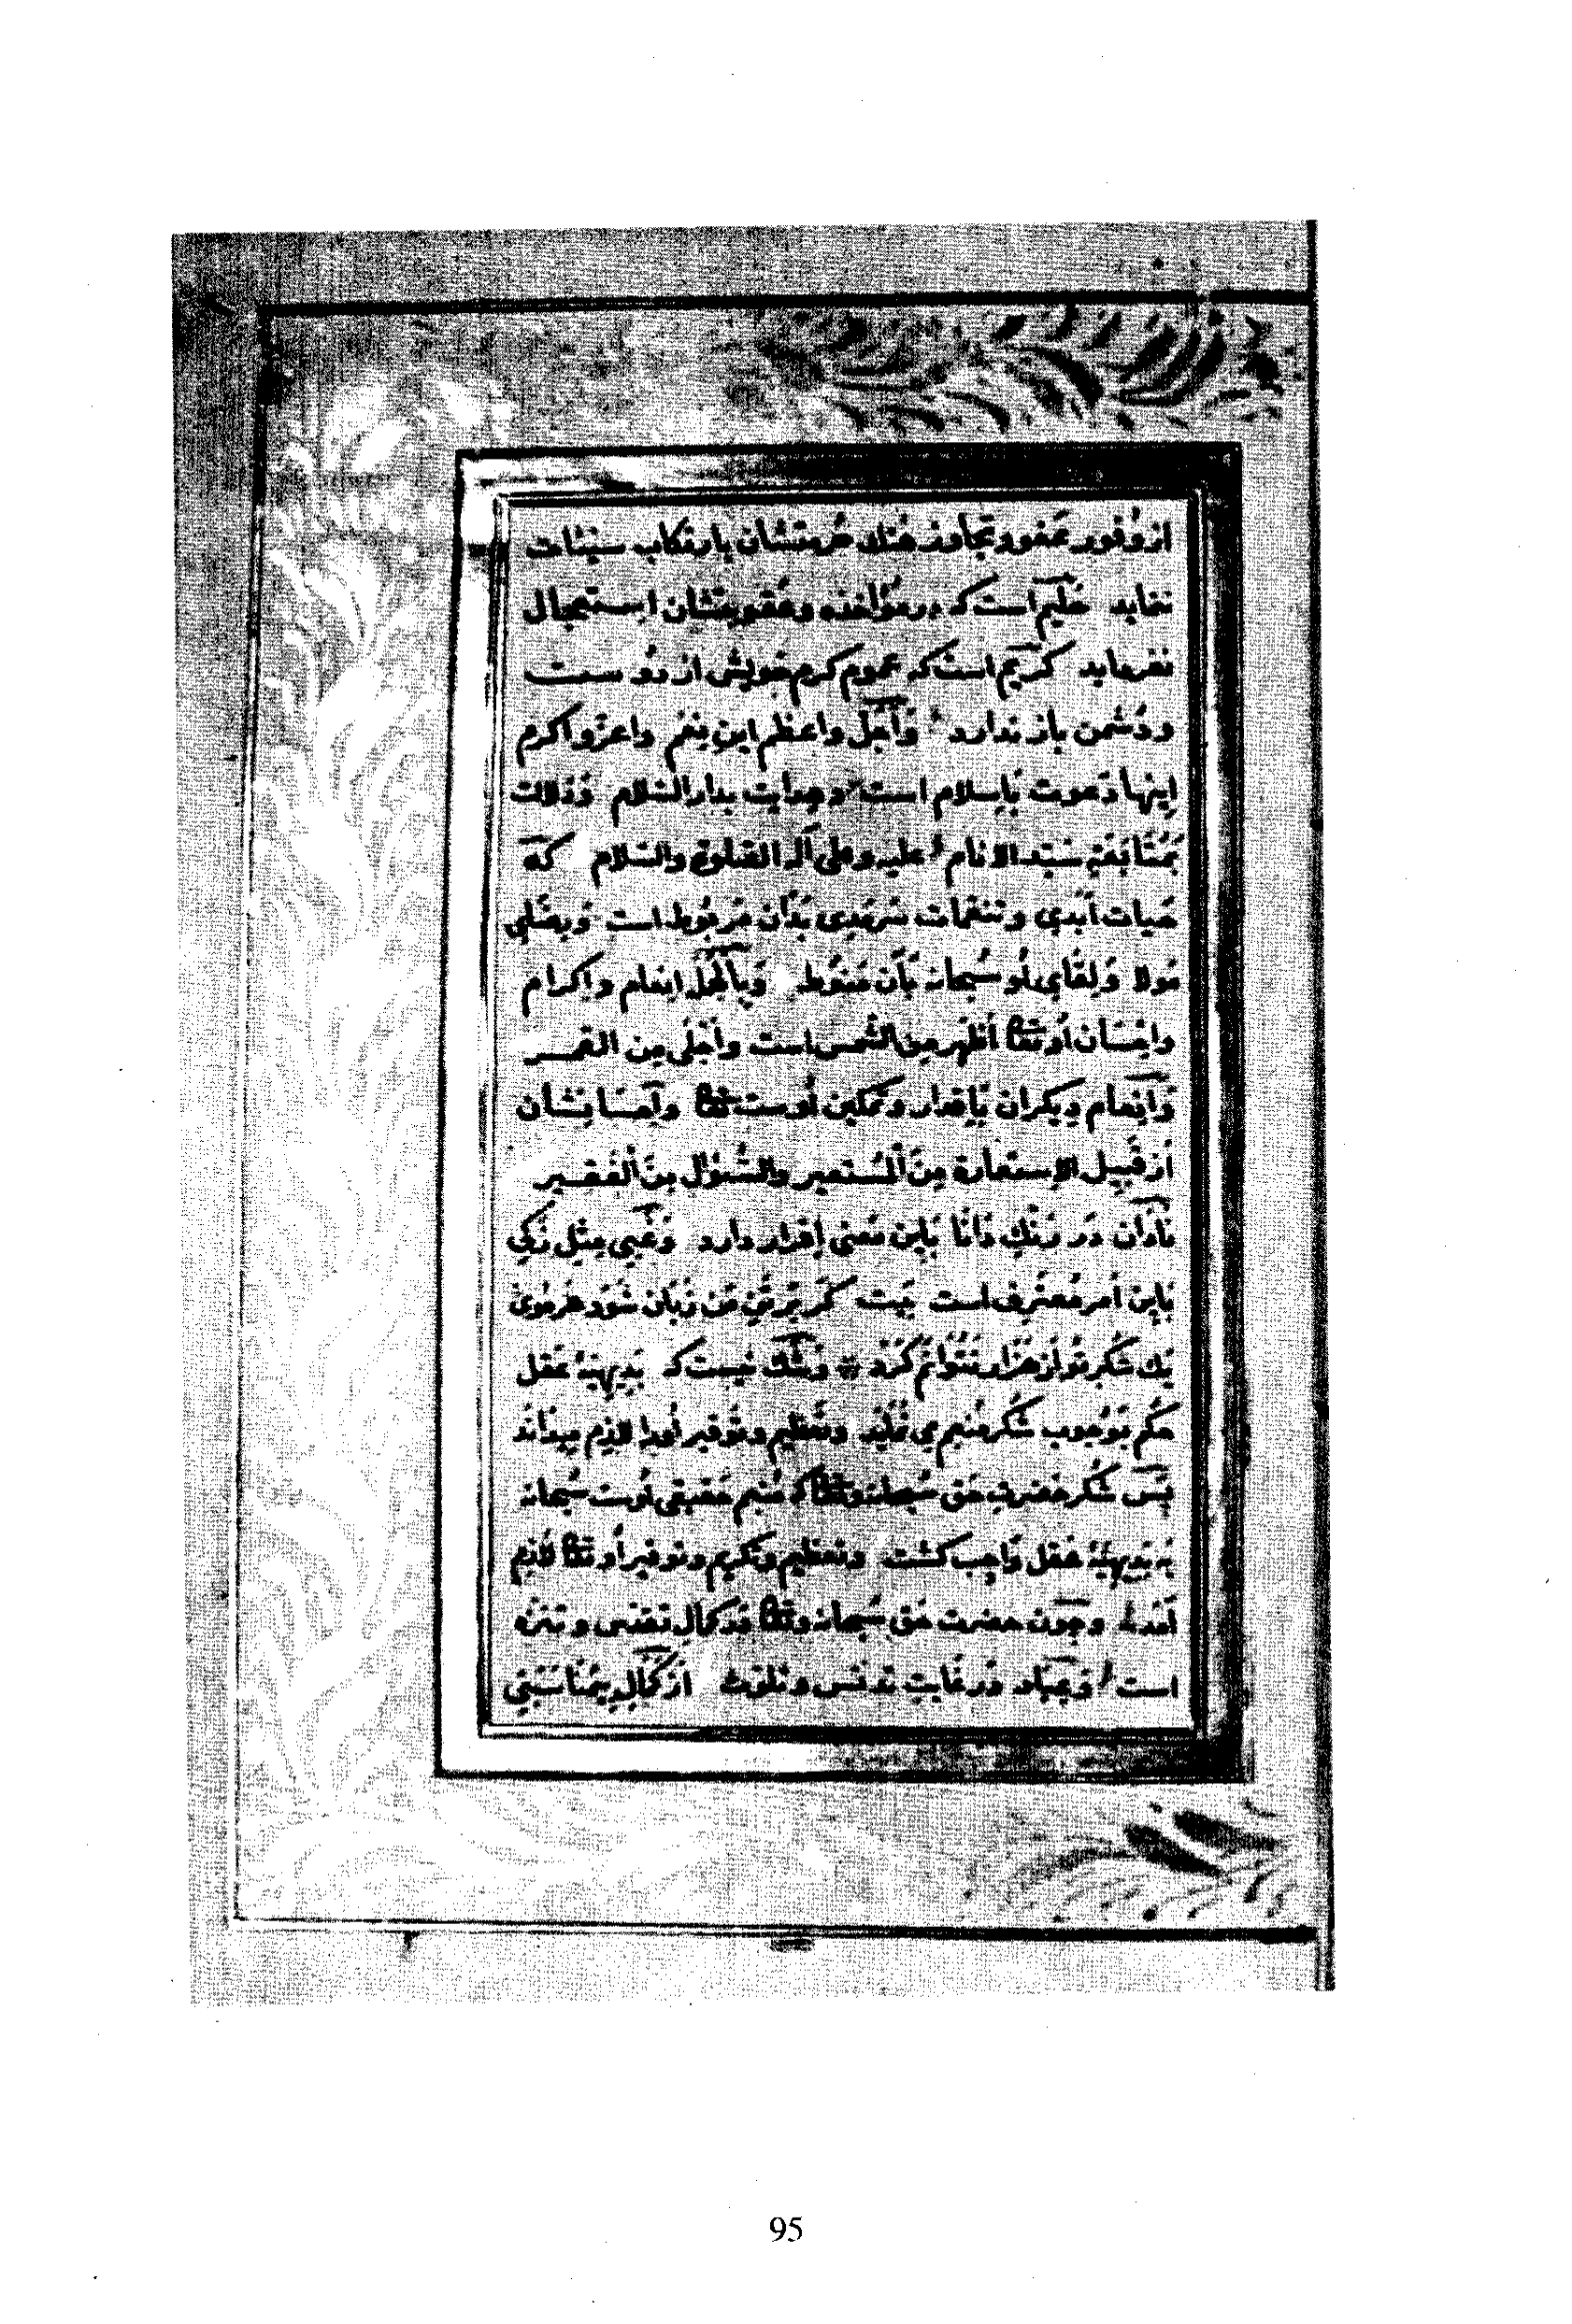 از وفور عفو و تجاوز هتك حرمتشان بارتكاب سيئات
ننمايد حليم است كه در مؤاخذه و عقوبتشان استعجال
نفرمايد كريم است كه عموم كرم خويش از دوست
و دشمن باز ندارد وأجل واعظم اين نعم واعز واكرم
اينها دعوت باسلام است و هدايت بدار السلام ودلالت
بمتابعت سيد الانام عليه وعلى آله الصلوة والسلام كه
حيات ابدى و تنعمات سرمدى بدان مربوط است و رضاى
مولا و لقاى او سبحانه بآن منوط و بالجمله انعام واكرام
واحسان او تعالى اظهر من الشمس است واجلى من القمر
وانعام ديكران باقدار و تمكين اوست تعالى واحسانشان
از قبيل الاستعارة من المستعير والسؤال من الفقير
نادان در رنك دانا باين معنى اقرار دارد و غبى مثل زكى
باين امر معترف است بيت كر بر تن من زبان شود هر موى
يك شكر تو از هزار نتوانم كرد و شك نيست كه بديهۀ عقل
حكم بوجوب شكر منعم مى نمايد و تعظيم و توقير او را لازم ميداند
پس شكر حضرت حق سبحانه وتعالى كه منعم حقيقى اوست سبحانه
به بديهۀ عقل واجب كشت و تعظيم و تكريم و توقير او تعالى لازم
آمد و چون حضرت حق سبحانه وتعالى در كمال تقدس و تنزه
است و عباد در غايت تدنس و تلوث از كمال بيمناسبتى
95